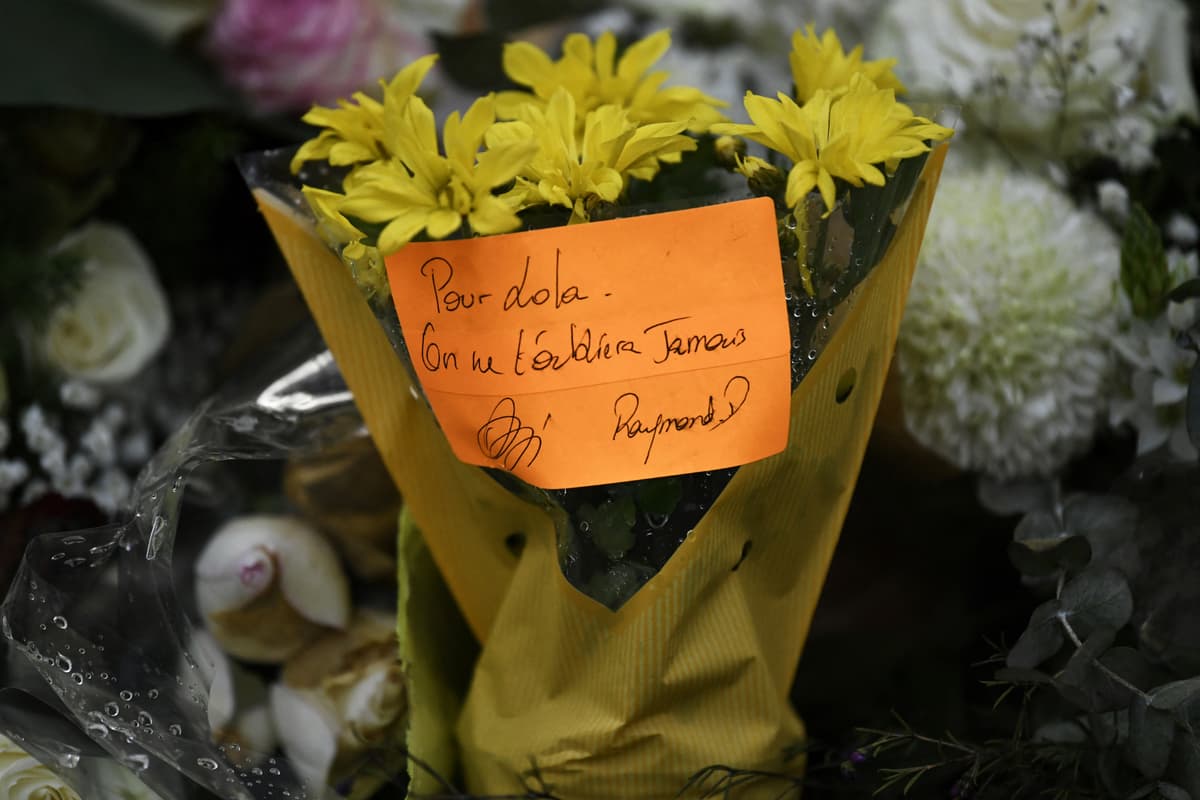 Pour Lola.
On ne t'oubliera Jamais
Raymond. D